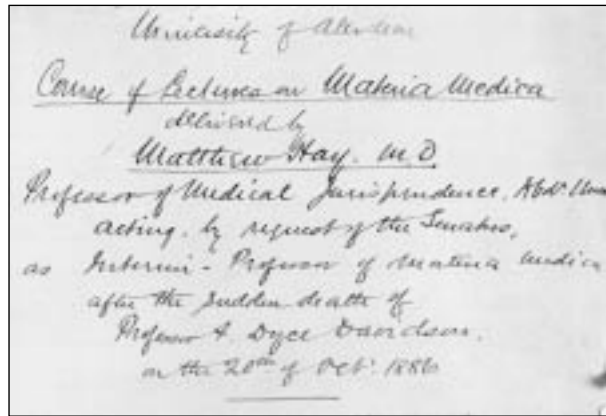 University of Aberdeen
Course of Lectures on Materia Medica
delivered by
Matthew Hay. M.D.
Professor of Medical Jurisprudence, Abdn Univ
acting, by request of the Senatus,
as Interim-Professor of Materia Medica
after the sudden death of
Professor A. Dyce Davidson.
on the 20th of Oct. 1886